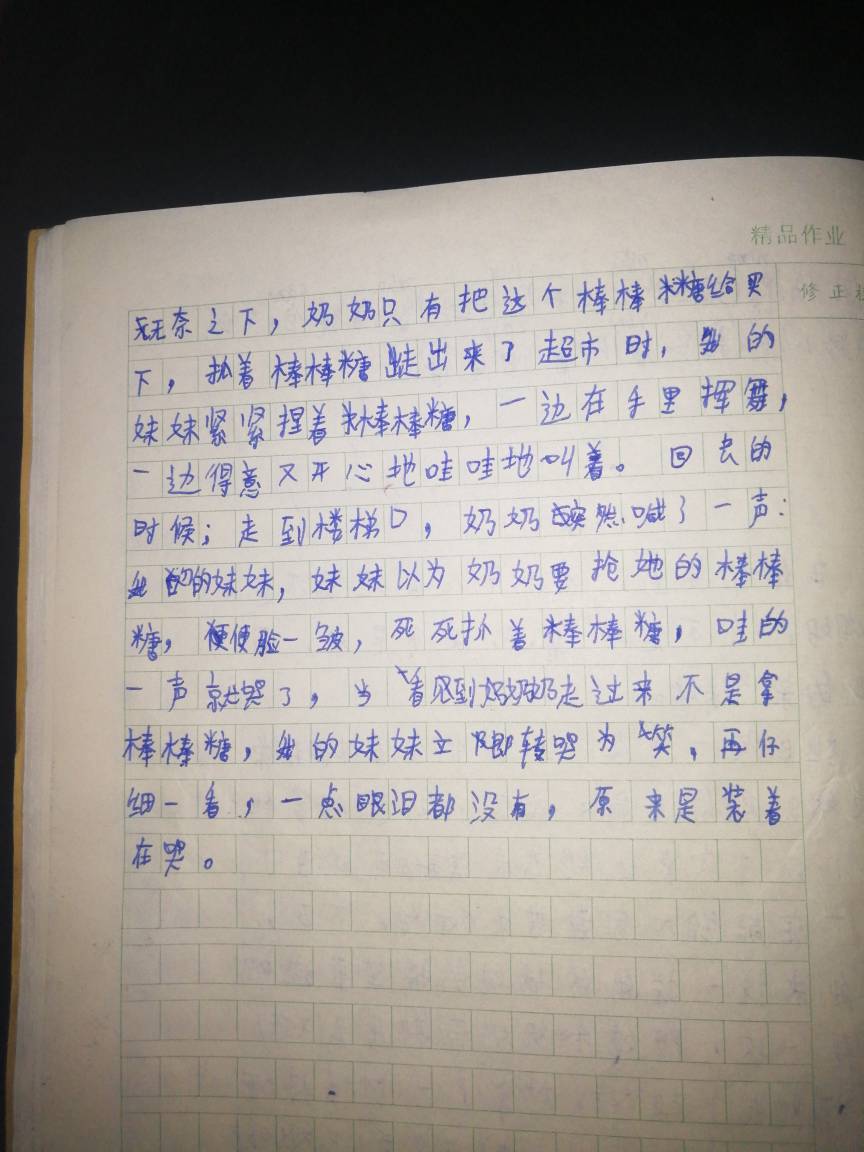 精品作业
修正
无奈之下，奶奶只有把这个棒棒糖给买
下，扒着棒棒糖走出来了超市时，我的
妹妹紧紧捏着棒棒糖，一边在手里挥舞，
一边得意又开心地哇哇地叫着。回去的
时候；走到楼梯口，奶奶突然喊了一声：
我的妹妹，妹妹以为奶奶要抢她的棒棒
糖，便使脸一皱，死死扒着棒棒糖，哇的
一声就哭了，当看到奶奶走过来不是拿
棒棒糖，我的妹妹立即转哭为笑，再仔
细一看，一点眼泪都没有，原来是装着
在哭。